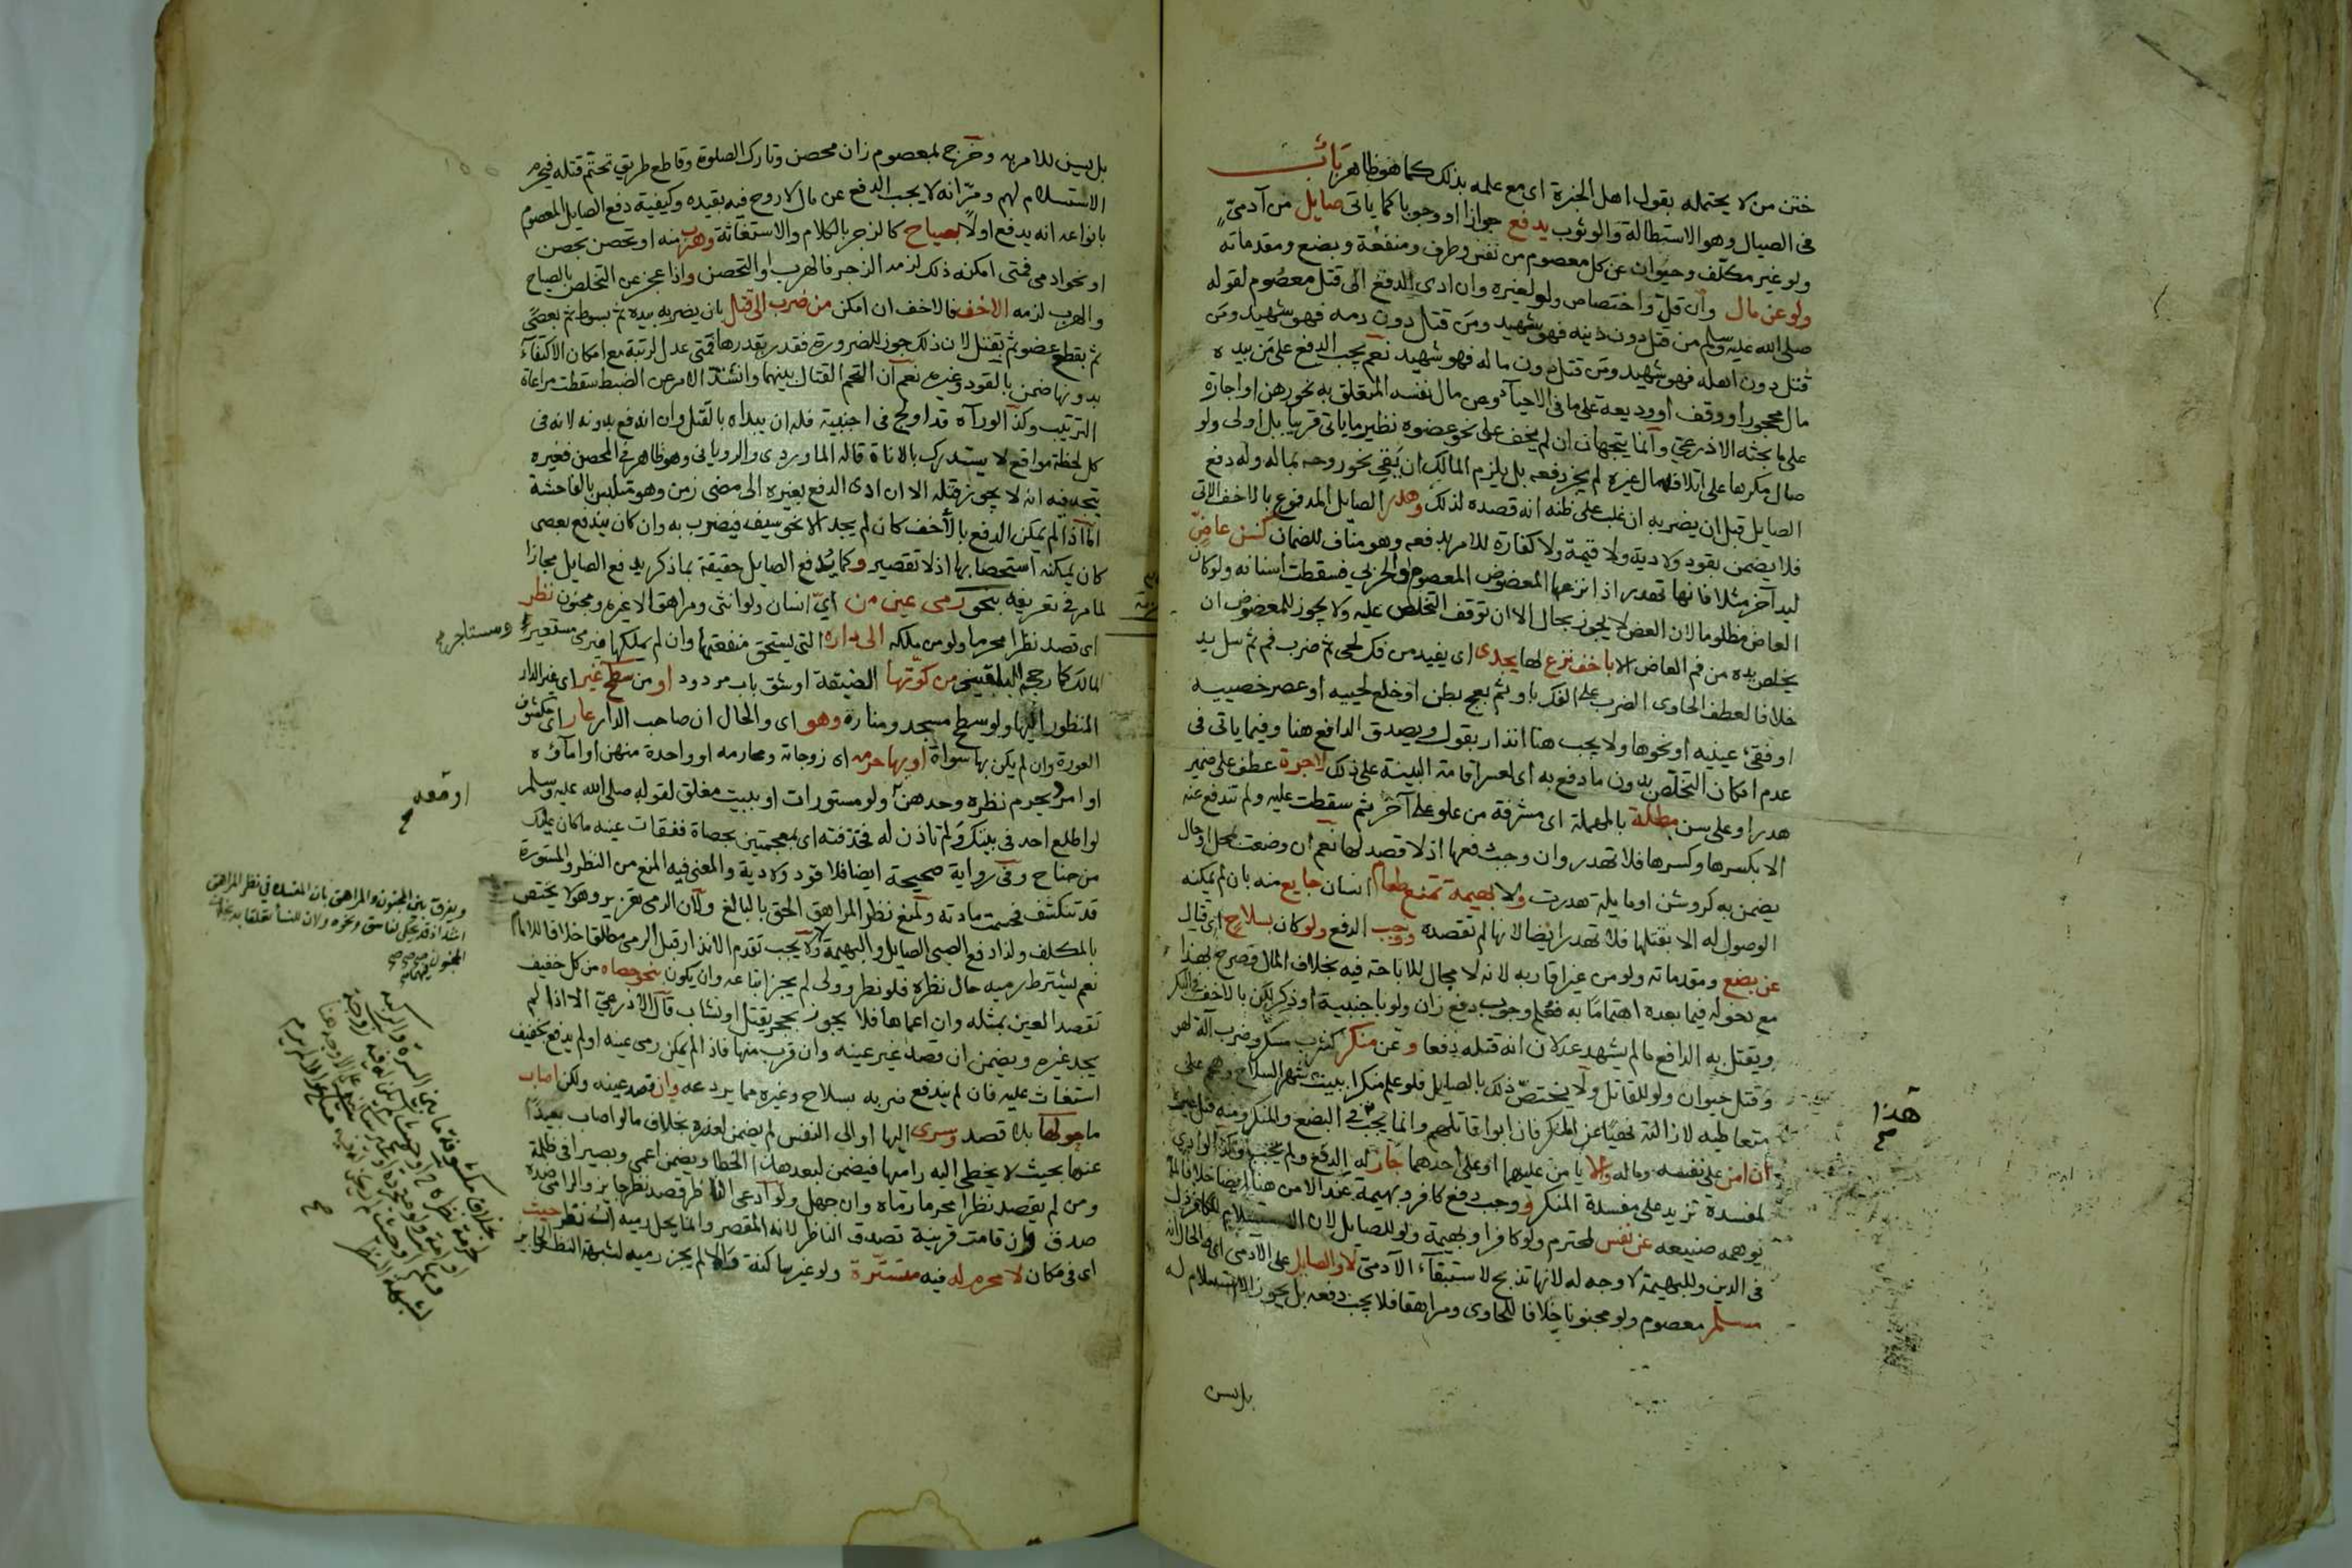 ختن من لا يحتمله بقول اهل الخبرة اى مع علمه بذلك كما هو ظاهر باب
فى الصيال وهو الاستطالة والوثوب يدفع جوازا او وجوبا كما ياتى صايل من آدمىّ
ولو غير مكلّف وحيوان عن كل معصوم من نفس وطرف ومنفعة وبضع ومقدماته
ولو عن مال وان قلّ واختصاص ولو لغيره وان ادى الدفع الى قتل معصوم لقوله
صلى الله عليه وسلم من قتل دون دينه فهو شهيد ومن قتل دون دمه فهو شهيد ومن
قتل دون اهله فهو شهيد ومن قتل دون ماله فهو شهيد نعم يجب الدفع على من بيده
مال محجور او وقف او وديعة على ما فى الاحياء وعن مال نفسه المتعلق به نحو رهن او اجارة
على ما بحثه الاذرعي وانما يتجهان ان لم يخف على نحو عضوه نظير ما ياتى قريبا بل اولى ولو
صال مكرها على اتلاف مال غيره لم يجز دفعه بل يلزم المالك ان يقى نحو روحه بماله وله دفع
الصايل قبل ان يضربه ان غلب على ظنه انه قصده لذلك وهدر الصايل المدفوع بالاخف الاتى
فلا يضمن بقود ولا دية ولا قيمة ولا كفارة للامر بدفعه وهو مناف للضمان كسن عاضّ
ليد آخر مثلا فانها تهدر اذا نزعها المعضوض المعصوم او الحربى فسقطت اسنانه ولو كان
العاض مظلوما لان العض لا يجوز بحال الا ان توقف التخلص عليه ولا يجوز للمعضوض ان
يخلص يده من فم العاض الا باخف نزع لها يجدى اى يفيد من فك لحى ثم ضرب فم ثم سل يد
خلافا لعطف الحاوى الضرب على الفك باو ثم بعج بطن او خلع لحييه او عصر خصييه
او فقئ عينيه او نحوها ولا يجب هنا انذار بقول ويصدق الدافع هنا وفيما ياتى فى
عدم امكان التخلص بدون ما دفع به اى لعسر اقامة البينة على ذلك لاجرة عطف على ضمير
هدر او على سن مطلة بالمهملة اى مشرفة من علو على آخر ثم سقطت عليه ولم تندفع عنه
الا بكسرها وكسرها فلا تهدر وان وجب دفعها اذ لا قصد لها نعم ان وضعت بمحل او حال
يضمن به كروشن او مايلة هدرت ولا بهيمة تمنع طعام انسان جايع منه بان لم يمكنه
الوصول له الا بقتلها فلا تهدر ايضا لانها لم تقصده ووجب الدفع ولو كان بسلاح اى قتال
عن بضع ومقدماته ولو من غير اقاربه لانه لا مجال للاباحة فيه بخلاف المال فصرح بهذا
مع دخوله فيما بعده اهتماما به فعلم وجوب دفع زان ولو باجنبية او ذكر لكن بالاخف
ويقتل به الدافع ما لم يشهد عدلان انه قتله دفعا وعن منكر كشرب مسكر وضرب آلة لهو
وقتل حيوان ولو للقاتل ولا يختصّ ذلك بالصايل فلو علم منكرا ببيت شهر السلاح وهجم على
متعاطيه لازالته نهيا عن المنكر فان ابوا قاتلهم وانما يجب فى البضع والمنكر ومنه قتل
ان امن على نفسه وماله والا يا من عليهما او على احدهما جاز له الدفع ولم يجب
لمفسدة تزيد على مفسدة المنكر ووجب دفع كافر وبهيمة عند الامن هنا ايضا خلافا لما
يوهمه صنيعه عن نفس لمحترم ولو كافرا وبهيمة ولو للصايل لان الاستسلام للكافر ذل
فى الدين وللبهيمة لا وجه له لانها تذبح لاستبقاء الآدمى لا والصايل على الادمى اى والحال انه
مسلم معصوم ولو مجنونا خلافا للحاوى ومراهقا فلا يجب دفعه بل يجوز الاستسلام له
بل يسن
هذا
بل يسن للامر به وخرج بمعصوم زان محصن وتارك الصلوة وقاطع طريق تحتّم قتله فيحرم
الاستسلام لهم ومرّ انه لا يجب الدفع عن مال لا روح فيه بقيده وكيفية دفع الصايل المعصوم
بانواعه انه يدفع اولاً بصياح كالزجر بالكلام والاستغاثة وهرب منه او تحصن بحصن
او نحوادمى فمتى امكنه ذلك لزمه الزجر فالهرب او التحصن واذا عجز عن التخلص بالصياح
والهرب لزمه الاخف فالاخف ان امكن من ضرب الى قتال بان يضربه بيده ثم بسوط ثم بعصًى
ثم بقطع عضو ثم يقتل لان ذلك جوز للضرورة فقدر بقدرها فمتى عدل لرتبة مع امكان الاكتفاء
بدونها ضمن بالقود وغيره نعم ان التحم القتال بينهما واشتد الامر عن الضبط سقطت مراعاة
الترتيب وكذا لو رآه قد اولج فى اجنبية فله ان يبداه بالقتل وان اندفع بدونه لانه فى
كل لحظة مواقع لا يستدرك بالاناة قاله الماوردى والرويانى وهو ظاهر فى المحصن فغيره
يتجه فيه انه لا يجوز قتله الا ان ادى الدفع بغيره الى مضى زمن وهو متلبس بالفاحشة
اما اذا لم يمكن الدفع بالاخف كان لم يجد الا نحو سيف فيضرب به وان كان يندفع بعصى
كان يمكنه استصحابها اذ لا تقصير وكما يدفع الصايل حقيقة بما ذكر يدفع الصايل مجازا
لما مر فى تعريفه بنحو رمى عين من اىّ انسان ولو انثى ومراهق لا غيره ومجنون نظر
اى قصد نظرا محرما ولو من ملكه الى داره التى يستحق منفعتها وان لم يملكها فيرمى مستعير ومستاجر
المالك كما رجحه البلقينى من كوّتها الضيقة او شق باب مردود او من سطح غير اى غير الدار
المنظور اليها ولو سطح مسجد ومنارة وهو اى والحال ان صاحب الدار عار اى مكشوف
العورة وان لم يكن بها سواه او بها حرمه اى زوجاته ومحارمه او واحدة منهن او امآؤه
او امرد يحرم نظره وحدهن ولو مستورات او ببيت مغلق لقوله صلى الله عليه وسلم
لو اطلع احد فى بيتك ولم تاذن له فخذفته اى بمعجمتين بحصاة ففقات عينه ما كان عليك
من جناح وفى رواية صحيحة ايضا فلا قود ولا دية والمعنى فيه المنع من النظر والمستورة
قد تنكشف فحسمت مادته ولمنع نظر المراهق الحق بالبالغ ولان الرمى تعزير وهو لا يختص
بالمكلف ولذا دفع الصبى الصايل والبهيمة ولا يجب تقدم الانذار قبل الرمى مطلقا خلافا للامام
نعم يشترط رميه حال نظره فلو نظر وولى لم يجز اتباعه وان يكون بنحو حصاه من كل خفيف
تقصد العين بمثله وان اعماها فلا يجوز بحجر يقتل او نشاب قال الاذرعى الا اذا لم
يجد غيره ويضمن ان قصد غير عينه وان قرب منها فاذا لم يمكن رمى عينه او لم يدفع بخفيف
استغاث عليه فان لم يندفع ضربه بسلاح وغيره مما يردعه وان قصد عينه ولكن اصاب
ما حولها بلا قصد وسرى اليها او الى النفس لم يضمن لعذره بخلاف ما لو اصاب بعيدًا
عنها بحيث لا يخطى اليه رامها فيضمن لبعد هذا الخطا ويضمن اعمى وبصيرا فى ظلمة
ومن لم يقصد نظرا محرما رماه وان جهل ولو ادعى الناظر قصد نظر جايز والرامى ضده
صدق وان قامت قرينة تصدق الناظر لانه المقصر وانما يحل رميه ان نظر حيث
اى فى مكان لا محرم له فيه مستترة ولو غير ساكنة والا لم يجز رميه لشبهة النظر الجايز
او معه
ويفرق بين المجنون والمراهق بان المفسدة فى نظر المراهق
اشد اذ قد يحكى لفاسق ونحوه ولان للنسا تعلقا به بخلاف
المجنون